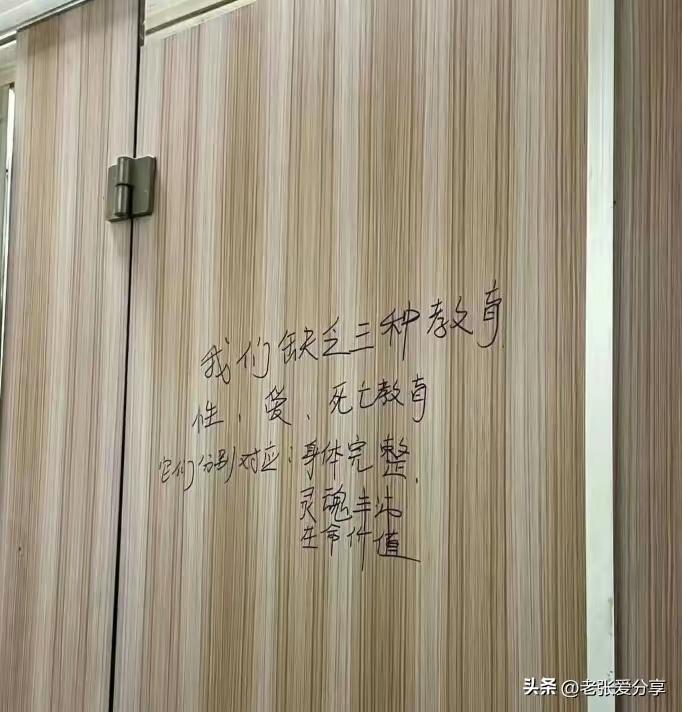 我们缺乏三种教育
性、爱、死亡教育
它们分别对应：身体完整、
灵魂丰沛
生命价值
头条 @老张爱分享